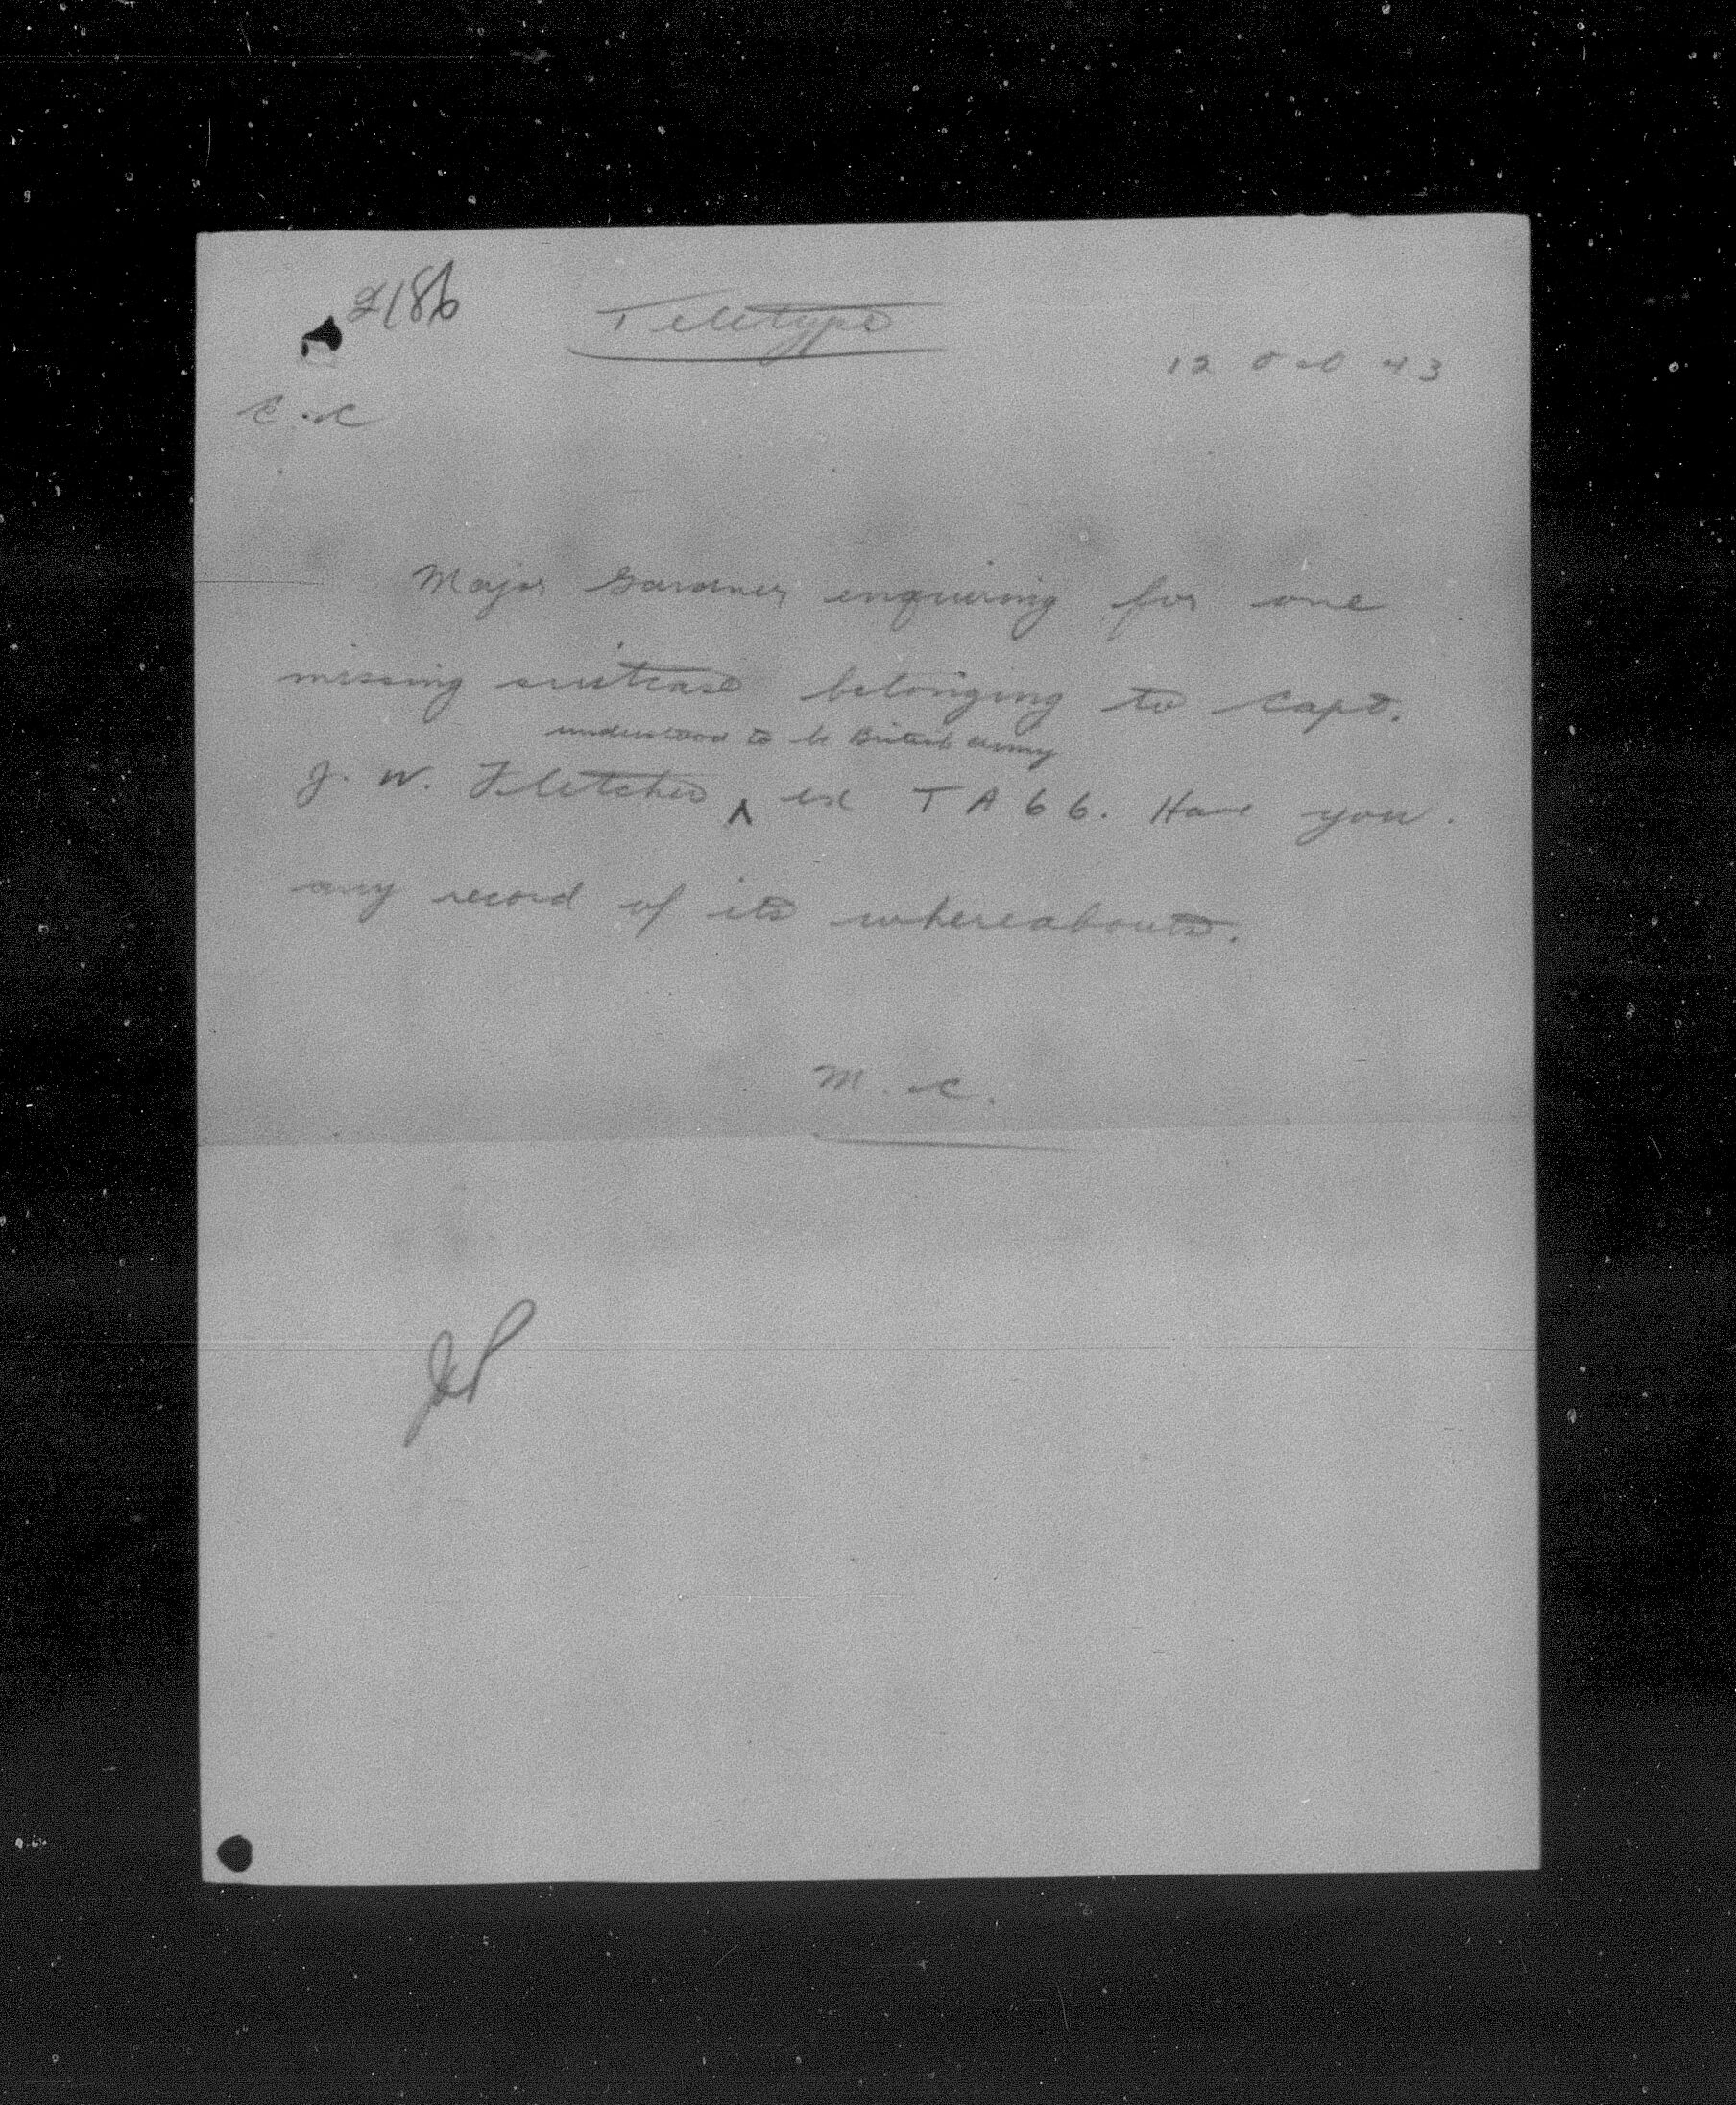 Teletype
12 Oct 43
C.C
Major Gardner enquiring for one
missing suitcase belonging to Capt.
understood to be British army
J. W. Fletcher ^ ex T A 6 6. Have you.
any record of its whereabouts.
M. C.